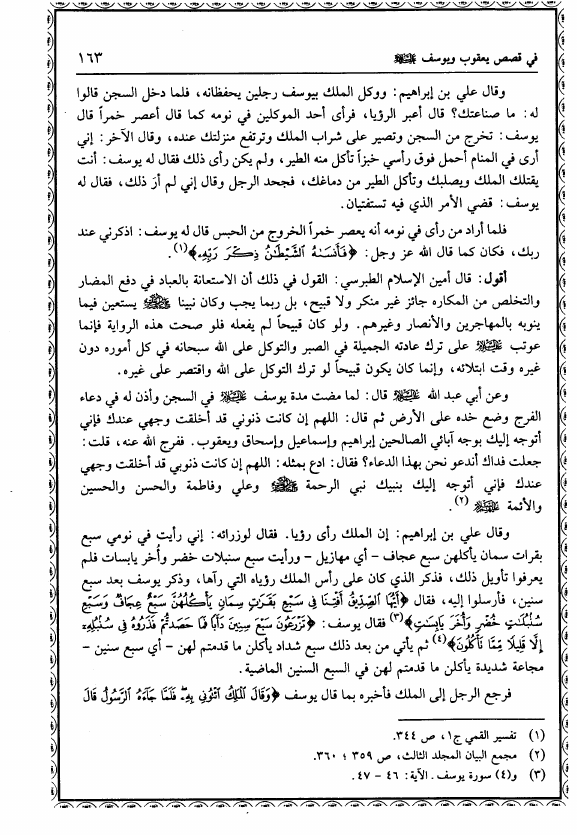 في قصص يعقوب ويوسف ﷺ ١٦٣
وقال علي بن إبراهيم: ووكل الملك بيوسف رجلين يحفظانه، فلما دخل السجن قالوا
له: ما صناعتك؟ قال أعبر الرؤيا، فرأى أحد الموكلين في نومه كما قال أعصر خمراً قال
يوسف: تخرج من السجن وتصير على شراب الملك وترتفع منزلتك عنده، وقال الآخر: إني
أرى في المنام أحمل فوق رأسي خبزاً تأكل منه الطير، ولم يكن رأى ذلك فقال له يوسف: أنت
يقتلك الملك ويصلبك وتأكل الطير من دماغك، فجحد الرجل وقال إني لم أرَ ذلك، فقال له
يوسف: قضي الأمر الذي فيه تستفتيان.
فلما أراد من رأى في نومه أنه يعصر خمراً الخروج من الحبس قال له يوسف: اذكرني عند
ربك، فكان كما قال الله عز وجل: ﴿فَأَنسَاهُ الشَّيْطَانُ ذِكْرَ رَبِّهِ﴾(١).
أقول: قال أمين الإسلام الطبرسي: القول في ذلك أن الاستعانة بالعباد في دفع المضار
والتخلص من المكاره جائز غير منكر ولا قبيح، بل ربما يجب وكان نبينا ﷺ يستعين فيما
ينوبه بالمهاجرين والأنصار وغيرهم. ولو كان قبيحاً لم يفعله فلو صحت هذه الرواية فإنما
عوتب عليه السلام على ترك عادته الجميلة في الصبر والتوكل على الله سبحانه في كل أموره دون
غيره وقت ابتلائه، وإنما كان يكون قبيحاً لو ترك التوكل على الله واقتصر على غيره.
وعن أبي عبد الله عليه السلام قال: لما مضت مدة يوسف عليه السلام في السجن وأذن له في دعاء
الفرج وضع خده على الأرض ثم قال: اللهم إن كانت ذنوني قد أخلقت وجهي عندك فإني
أتوجه إليك بوجه آبائي الصالحين إبراهيم وإسماعيل وإسحاق ويعقوب. ففرج الله عنه، قلت:
جعلت فداك أندعو نحن بهذا الدعاء؟ فقال: ادع بمثله: اللهم إن كانت ذنوبي قد أخلقت وجهي
عندك فإني أتوجه إليك بنبيك نبي الرحمة ﷺ وعلي وفاطمة والحسن والحسين
والأئمة عليهم السلام(٢).
وقال علي بن إبراهيم: إن الملك رأى رؤيا. فقال لوزرائه: إني رأيت في نومي سبع
بقرات سمان يأكلهن سبع عجاف – أي مهازيل – ورأيت سبع سنبلات خضر وأُخر يابسات فلم
يعرفوا تأويل ذلك، فذكر الذي كان على رأس الملك رؤياه التي رآها، وذكر يوسف بعد سبع
سنين، فأرسلوا إليه، فقال ﴿أَيُّهَا الصِّدِّيقُ أَفْتِنَا فِي سَبْعِ بَقَرَاتٍ سِمَانٍ يَأْكُلُهُنَّ سَبْعٌ عِجَافٌ وَسَبْعِ
سُنبُلَاتٍ خُضْرٍ وَأُخَرَ يَابِسَاتٍ﴾(٣) فقال يوسف: ﴿تَزْرَعُونَ سَبْعَ سِنِينَ دَأَبًا فَمَا حَصَدتُّمْ فَذَرُوهُ فِي سُنبُلِهِ
إِلَّا قَلِيلًا مِّمَّا تَأْكُلُونَ﴾(٤) ثم يأتي من بعد ذلك سبع شداد يأكلن ما قدمتم لهن – أي سبع سنين –
مجاعة شديدة يأكلن ما قدمتم لهن في السبع السنين الماضية.
فرجع الرجل إلى الملك فأخبره بما قال يوسف ﴿وَقَالَ الْمَلِكُ ائْتُونِي بِهِ فَلَمَّا جَاءَهُ الرَّسُولُ قَالَ
(١) تفسير القمي ج١، ص ٣٤٤.
(٢) مجمع البيان المجلد الثالث، ص ٣٥٩ ؛ ٣٦٠.
(٣) و(٤) سورة يوسف. الآية: ٤٦ – ٤٧.